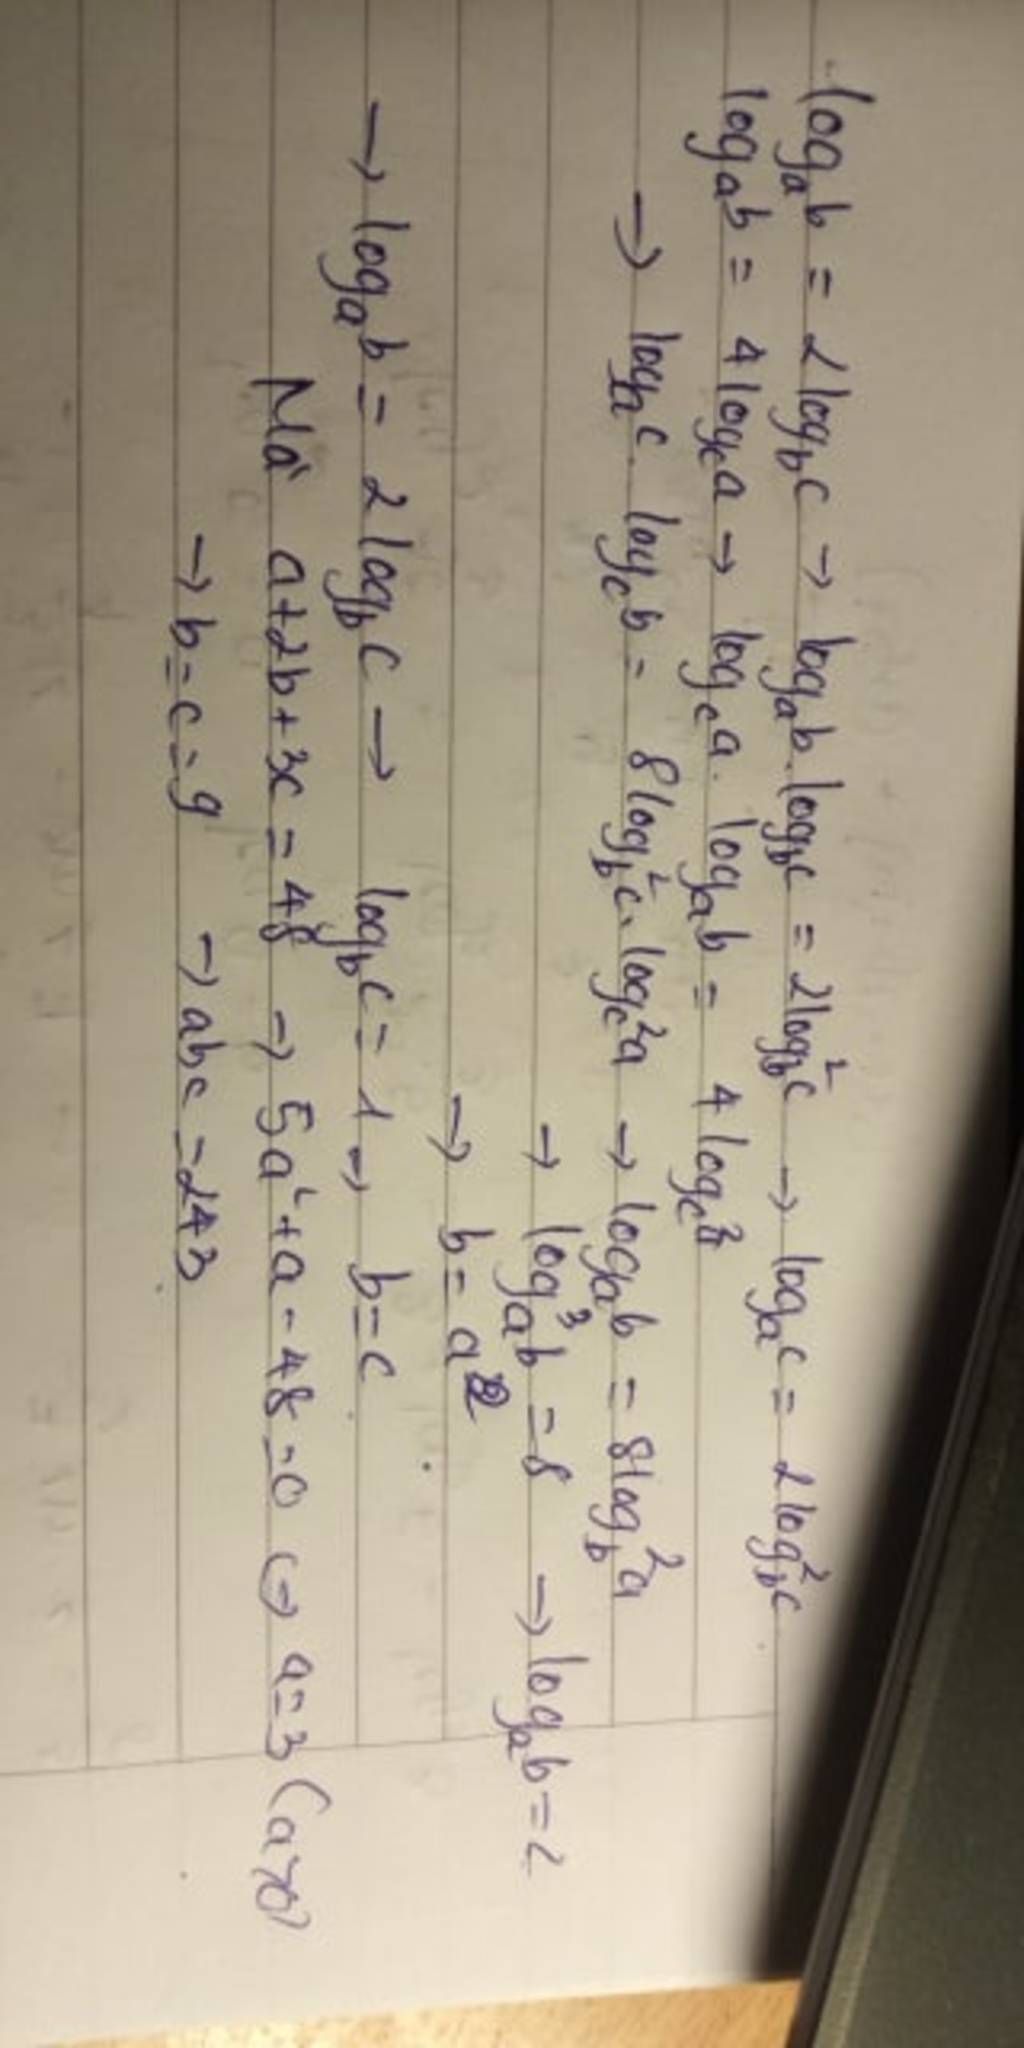 log_a b = 2 log_b c → log_a b . log_b c = 2 log_b² c → log_a c = 2 log_b² c
log_a b = 4 log_c a → log_c a . log_a b = 4 log_c² a
→ log_a c . log_c b = 8 log_b² c . log_c² a → log_a b = 8 log_b² a
→ log_a³ b = 8 → log_a b = 2
→ b = a²
→ log_a b = 2 log_b c → log_b c = 1 → b = c
Mà a + 2b + 3c = 48 → 5a² + a - 48 = 0 (→ a = 3 (a>0)
→ b = c = 9 → abc = 243